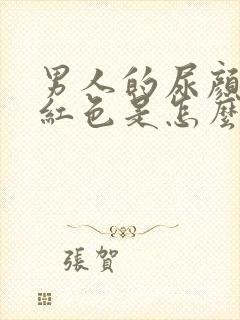 男人的尿顔
紅色是怎麼
張賀